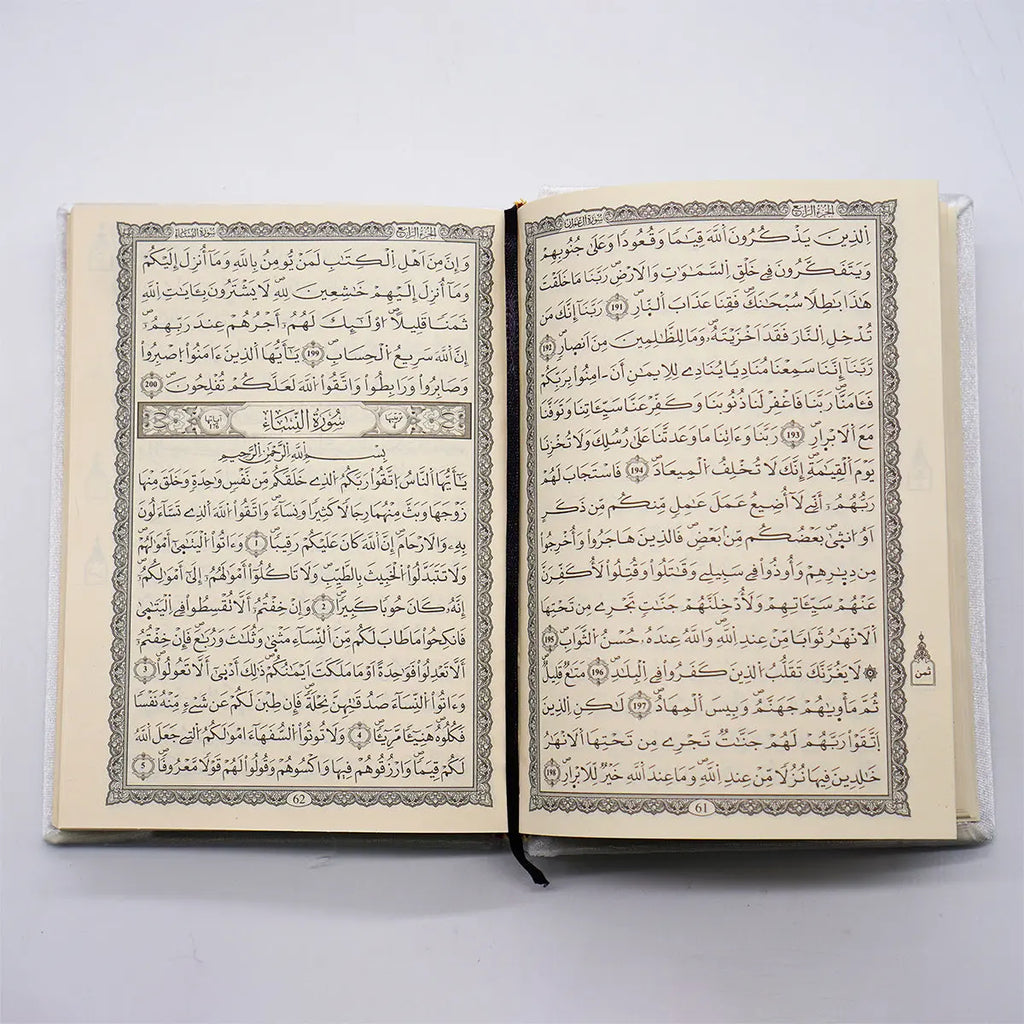 الجزء الرابع
سورة آل عمران
اَلذِينَ يَذْكُرُونَ اَللَّهَ قِيَٰمًا وَقُعُودًا وَعَلَىٰ جُنُوبِهِمْ
وَيَتَفَكَّرُونَ فِي خَلْقِ اِلسَّمَٰوَٰتِ وَالَارْضِ رَبَّنَا مَا خَلَقْتَ
هَٰذَا بَٰطِلًا سُبْحَٰنَكَ فَقِنَا عَذَابَ اَلنَّارِ 191 رَبَّنَآ إِنَّكَ مَن
تُدْخِلِ اِلنَّارَ فَقَدَ اَخْزَيْتَهُۥ وَمَا لِلظَّٰلِمِينَ مِنَ اَنصَارٍ 192
رَّبَّنَآ إِنَّنَا سَمِعْنَا مُنَادِيًا يُنَادِے لِلِايمَٰنِ أَنَ اٰمِنُوا بِرَبِّكُمْ
فَـَٔامَنَّا رَبَّنَا فَاغْفِرْ لَنَا ذُنُوبَنَا وَكَفِّرْ عَنَّا سَيِّـَٔاتِنَا وَتَوَفَّنَا
مَعَ اَلَابْرَارِ 193 رَبَّنَا وَءَاتِنَا مَا وَعَدتَّنَا عَلَىٰ رُسُلِكَ وَلَا تُخْزِنَا
يَوْمَ اَلْقِيَٰمَةِ إِنَّكَ لَا تُخْلِفُ اُلْمِيعَادَ 194 فَاسْتَجَابَ لَهُمْ
رَبُّهُمُۥٓ أَنِّي لَآ أُضِيعُ عَمَلَ عَٰمِلٍ مِّنكُم مِّن ذَكَرٍ
اَوُ انثَىٰ بَعْضُكُم مِّنۢ بَعْضٍ فَالذِينَ هَاجَرُوا وَأُخْرِجُوا
مِن دِيَٰرِهِمْ وَأُوذُوا فِي سَبِيلِے وَقَٰتَلُوا وَقُتِلُوا لَأُكَفِّرَنَّ
عَنْهُمْ سَيِّـَٔاتِهِمْ وَلَأُدْخِلَنَّهُمْ جَنَّٰتٍ تَجْرِے مِن تَحْتِهَا
اَلَانْهَٰرُ ثَوَابًا مِّنْ عِندِ اِللَّهِ وَاللَّهُ عِندَهُۥ حُسْنُ اُلثَّوَابِ 195
۞ لَا يَغُرَّنَّكَ تَقَلُّبُ اُلذِينَ كَفَرُوا فِي اِلْبِلَٰدِ 196 مَتَٰعٌ قَلِيلٌ
ثُمَّ مَأْوٜيٰهُمْ جَهَنَّمُ وَبِيسَ اَلْمِهَادُ 197 لَٰكِنِ اِلذِينَ
اَتَّقَوْا رَبَّهُمْ لَهُمْ جَنَّٰتٌ تَجْرِے مِن تَحْتِهَا اَلَانْهَٰرُ
خَٰلِدِينَ فِيهَا نُزُلًا مِّنْ عِندِ اِللَّهِ وَمَا عِندَ اَللَّهِ خَيْرٌ لِّلَابْرَارِ 198
ثمن
61
الجزء الرابع
سورة النساء
وَإِنَّ مِنَ اَهْلِ اِلْكِتَٰبِ لَمَنْ يُّومِنُ بِاللَّهِ وَمَآ أُنزِلَ إِلَيْكُمْ
وَمَآ أُنزِلَ إِلَيْهِمْ خَٰشِعِينَ لِلهِ لَا يَشْتَرُونَ بِـَٔايَٰتِ اِللَّهِ
ثَمَنًا قَلِيلًا اُوْلَٰٓئِكَ لَهُمُۥٓ أَجْرُهُمْ عِندَ رَبِّهِمُۥٓ
إِنَّ اَللَّهَ سَرِيعُ اُلْحِسَابِ 199 يَٰٓأَيُّهَا اَلذِينَ ءَامَنُوا اُصْبِرُوا
وَصَابِرُوا وَرَابِطُوا وَاتَّقُوا اُللَّهَ لَعَلَّكُمْ تُفْلِحُونَ 200
سُورَةُ النِّسَاءِ
بِسْمِ اِللَّهِ اِلرَّحْمَٰنِ اِلرَّحِيمِ
يَٰٓأَيُّهَا اَلنَّاسُ اُتَّقُوا رَبَّكُمُ اُلذِے خَلَقَكُم مِّن نَّفْسٍ وَٰحِدَةٍ وَخَلَقَ مِنْهَا
زَوْجَهَا وَبَثَّ مِنْهُمَا رِجَالًا كَثِيرًا وَنِسَآءً وَاتَّقُوا اُللَّهَ اَلذِے تَسَّآءَلُونَ
بِهِۦ وَالَارْحَامَ إِنَّ اَللَّهَ كَانَ عَلَيْكُمْ رَقِيبًا 1 وَءَاتُوا اُلْيَتَٰمَىٰٓ أَمْوَٰلَهُمْ
وَلَا تَتَبَدَّلُوا اُلْخَبِيثَ بِالطَّيِّبِ وَلَا تَاكُلُوٓا أَمْوَٰلَهُمُۥٓ إِلَىٰٓ أَمْوَٰلِكُمُۥٓ
إِنَّهُۥ كَانَ حُوبًا كَبِيرًا 2 وَإِنْ خِفْتُمُۥٓ أَلَّا تُقْسِطُوا فِي اِلْيَتَٰمَىٰ
فَانكِحُوا مَا طَابَ لَكُم مِّنَ اَلنِّسَآءِ مَثْنَىٰ وَثُلَٰثَ وَرُبَٰعَ فَإِنْ خِفْتُمُۥٓ
أَلَّا تَعْدِلُوا فَوَٰحِدَةً اَوْ مَا مَلَكَتَ اَيْمَٰنُكُمْ ذَٰلِكَ أَدْنَىٰٓ أَلَّا تَعُولُوا 3
وَءَاتُوا اُلنِّسَآءَ صَدُقَٰتِهِنَّ نِحْلَةً فَإِن طِبْنَ لَكُمْ عَن شَےْءٍ مِّنْهُ نَفْسًا
فَكُلُوهُ هَنِيٓـًٔا مَّرِيٓـًٔا 4 وَلَا تُوتُوا اُلسُّفَهَآءَ اَمْوَٰلَكُمُ اُلتِے جَعَلَ اَللَّهُ
لَكُمْ قِيَمًا وَارْزُقُوهُمْ فِيهَا وَاكْسُوهُمْ وَقُولُوا لَهُمْ قَوْلًا مَّعْرُوفًا 5
62